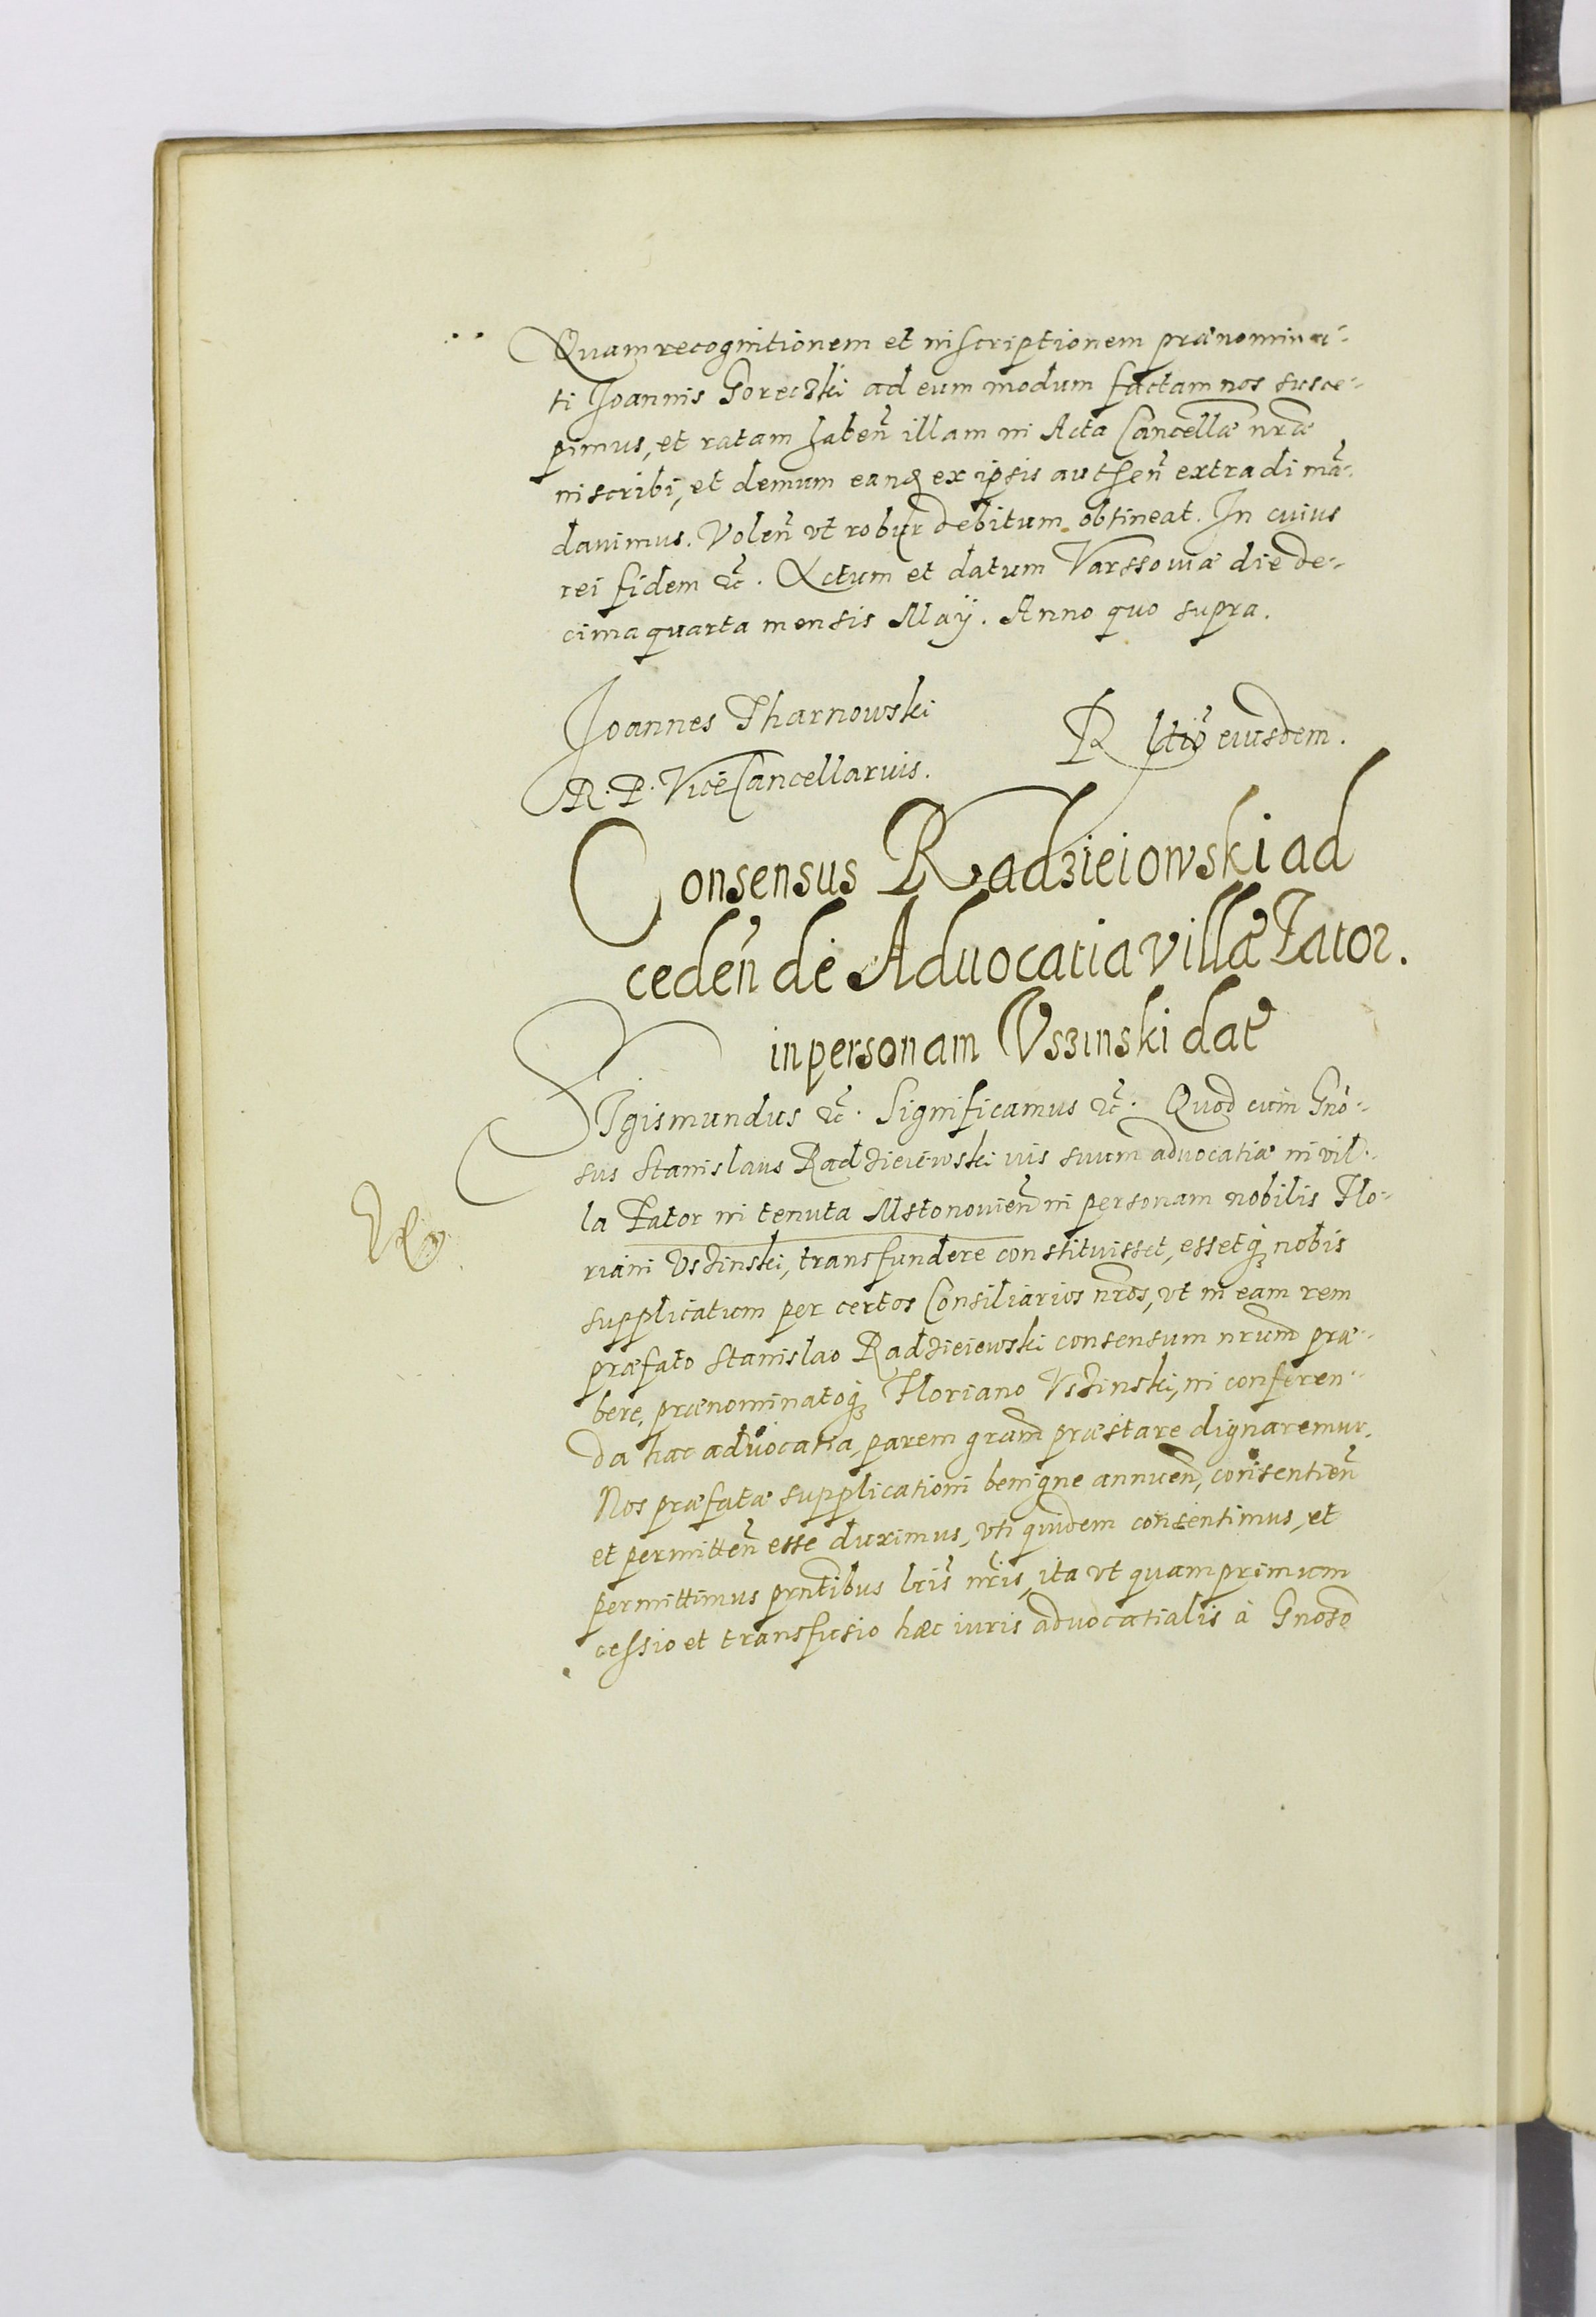 Quam recognitionem et inscriptionem prænomina-
ti Joannis Goreczki ad eum modum factam nos susce-
pimus, et ratam haben̄ illam in Acta Cancellæ nr̄æ
inscribi, et demum eand ex ipsis authen̄ extradi mā-
dauimus. Volen̄ vt robur debitum obtineat. In cuius
rei fidem ⁊c̄. Actum et datum Varssouiæ die de-
cima quarta mensis Maÿ. Anno quo supra.
Joannes Tharnowski
R. P. ViceCancellarius.
R ltio eiusdem.
Consensus Radzieiowski ad
ceden̄ de Aduocatia villæ Tator.
in personam Vszinski dat̄
SIgismundus ⁊c̄. Significamus ⁊c̄. Quod cum Gno-
sus Stanislaus Radzieiewski ius suum aduocatiæ in vil-
la Tator in tenuta Mstonouien̄ in personam nobilis Flo-
riani Vszinski, transfundere constituisset, essetq́ꝫ nobis
supplicatum per certos Consiliarios nr̄os, vt in eam rem
præfato Stanislao Radzieiewski consensum nrum̄ præ-
bere, prænominatoq́ꝫ Floriano Vszinski, in conferen-
da hac aduocatia, parem gram̄ præstare dignaremur.
Nos præfatæ supplicationi benigne annuen̄, consentien̄
et permitten̄ esse duximus, vti quidem consentimus, et
permittimus prn̄tibus lr̄is nr̄is, ita vt quamprimum
cessio et transfusio hæc iuris aduocatialis à Gnoso